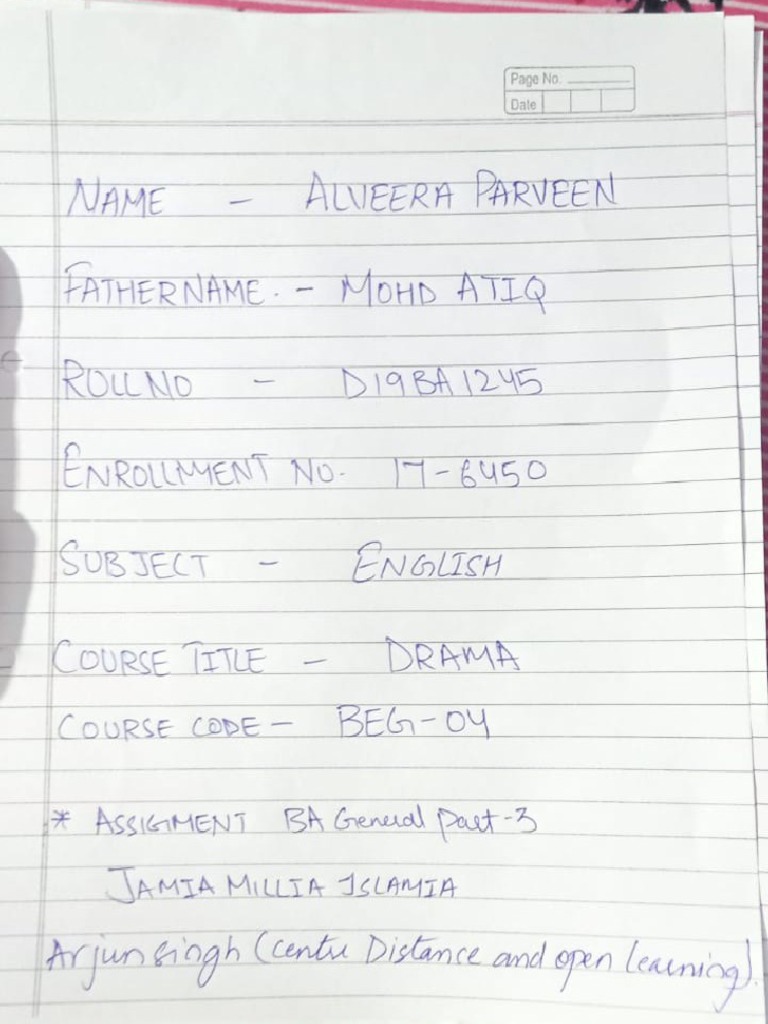 Page No.
Date
NAME - ALVEERA PARVEEN
FATHERNAME. - MOHD ATIQ
ROLL NO - D19BA1245
ENROLLMENT NO. 17-6450
SUBJECT - ENGLISH
COURSE TITLE - DRAMA
COURSE CODE - BEG-04
* ASSIGMENT BA General Part-3
JAMIA MILLIA ISLAMIA
Arjun singh (Centre Distance and open learning).